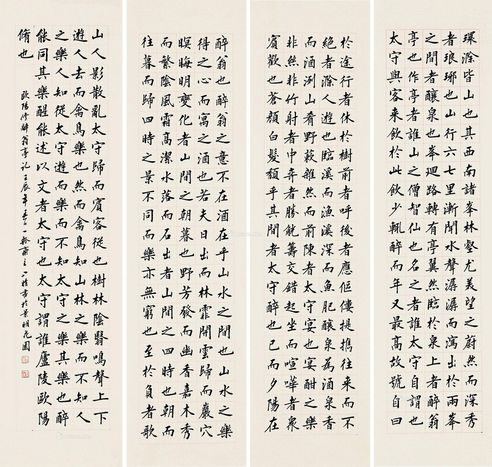 環滁皆山也其西南諸峯林壑尤美望之蔚然深秀
者琅琊也山行六七里漸聞水聲潺潺而瀉出於兩峯
之間者釀泉也峯迴路轉有亭翼然臨於泉上者醉翁
亭也作亭者誰山之僧智仙也名之者誰太守自謂也
太守與客來飲於此飲少輒醉而年又最高故號自曰
於途行者休於樹前者呼後者應傴僂提攜往來而不
絕者滁人遊也臨溪而漁溪深而魚肥釀泉為酒泉香
而酒洌山肴野蔌雜然而前陳者太守宴也宴酣之樂
非絲非竹射者中弈者勝觥籌交錯起坐而喧嘩者眾
賓歡也蒼顏白髮頹乎其間者太守醉也已而夕陽在
醉翁也醉翁之意不在酒在乎山水之間也山水之樂
得之心而寓之酒也若夫日出而林霏開雲歸而巖穴
暝晦明變化者山間之朝暮也野芳發而幽香嘉木秀
而繁陰風霜高潔水落而石出者山間之四時也朝而
往暮而歸四時之景不同而樂亦無窮也至於負者歌
山人影散亂太守歸而賓客從也樹林陰翳鳴聲上下
遊人去而禽鳥樂也然而禽鳥知山林之樂而不知人
之樂人知從太守遊而樂而不知太守之樂其樂也醉
能同其樂醒能述以文者太守也太守謂誰廬陵歐陽
脩也
歐陽修醉翁亭記壬辰年春